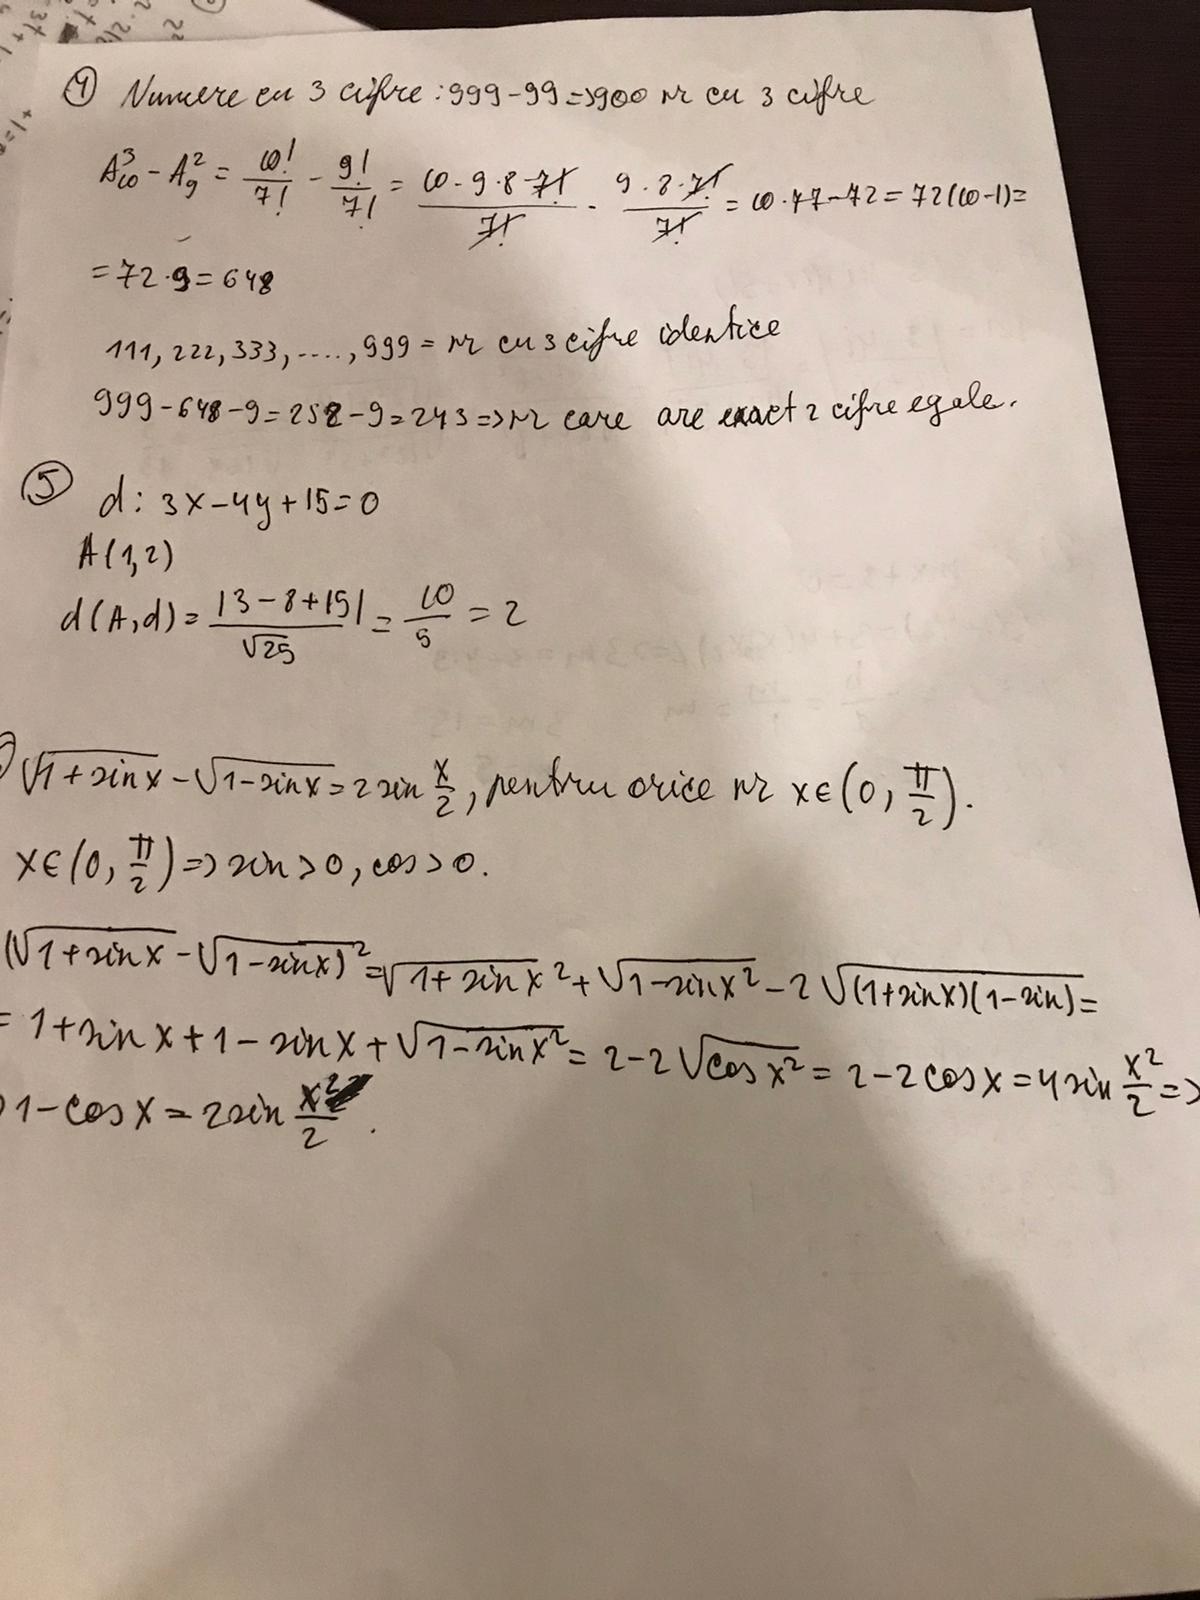 ④ Numere cu 3 cifre : 999 - 99 => 900 nr cu 3 cifre
A₁₀³ - A₉² = 10!/7! - 9!/7! = 10 · 9 · 8 · 7!/7! - 9 · 8 · 7!/7! = 10 · 77 - 72 = 72(10-1) =
= 72 · 9 = 648
111, 222, 333, ...., 999 = nr cu 3 cifre identice
999 - 648 - 9 = 252 - 9 = 243 => nr care are exact 2 cifre egale.
⑤ d: 3x - 4y + 15 = 0
A(1,2)
d(A,d) = |3 - 8 + 15|/√25 = 10/5 = 2
√(1+sin x) - √(1-sin x) = 2 sin x/2, pentru orice nr x∈(0, π/2).
x∈(0, π/2) => sin > 0, cos > 0.
(√(1+sin x) - √(1-sin x))² = √(1+sin x)² + √(1-sin x)² - 2√((1+sin x)(1-sin)) =
= 1+sin x + 1 - sin x + √(1-sin x²) = 2-2√(cos x²) = 2-2cos x = 4 sin x²/2 =>
1-cos x = 2 sin x²/2.